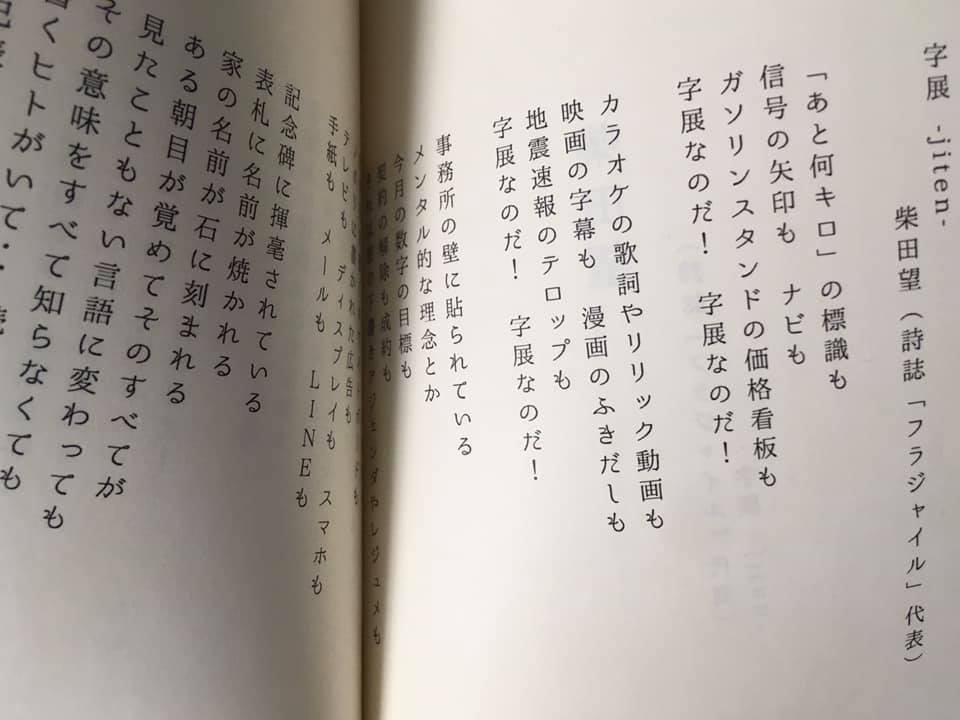 字展 -jiten-
柴田望（詩誌「フラジャイル」代表）
「あと何キロ」の標識も
信号の矢印も　ナビも
ガソリンスタンドの価格看板も
字展なのだ！　字展なのだ！
カラオケの歌詞やリリック動画も
映画の字幕も　漫画のふきだしも
地震速報のテロップも
字展なのだ！　字展なのだ！
事務所の壁に貼られている
メンタル的な理念とか
今月の数字の目標も
契約の解除も成約も
アジェンダやレジュメも
かれた広告も
テレビも　ディスプレイも　スマホも
手紙も　メールも　LINEも
記念碑に揮毫されている
表札に名前が焼かれる
家の名前が石に刻まれる
ある朝目が覚めてそのすべてが
見たこともない言語に変わっても
その意味をすべて知らなくても
くヒトがいて・・